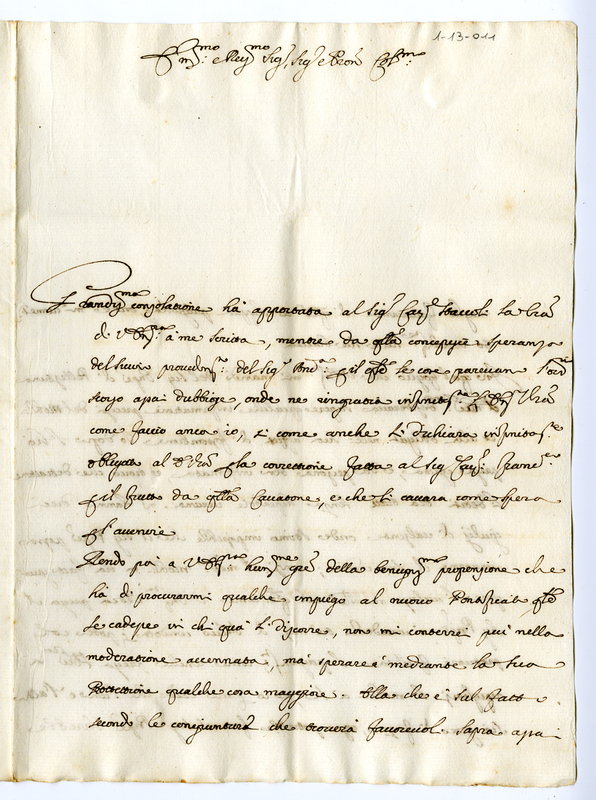 1-13-011
Em.mo e Rev.mo Sig.r, Sig.r e Pron Col.mo
Grandiss.ma consolatione hà apportata al Sig.r Cav.r Staccoli la l'ra
di V. Em.za à me scritta, mentre da q'lla concepisce speranza
del suo providen del Sig.r p il q'le le cose parevan
assai dubbiose, onde ne ringratia infinitam.te V. Em.za
come faccio anco io, si come anche si dichiara infinitam.te
obligato al p la correttione fatta al Sig.r Cav.r Fran.co
p il frutto da q'lla cavatone, e che si cavarà come spera
p l'avvenire
Rendo poi a V. Em.za hum.me gre della benigniss.ma propensione che
hà di procurarmi qualche impiego al nuovo Pontificato q'le
se cadesse in chi quà si discorre, non mi conterrei più nella
moderatione accennata, mà sperarei mediante la sua
Protettione qualche cosa maggiore. Ella che è sul fatto
secondo le congiunture che troverà favorevol. saprà assai